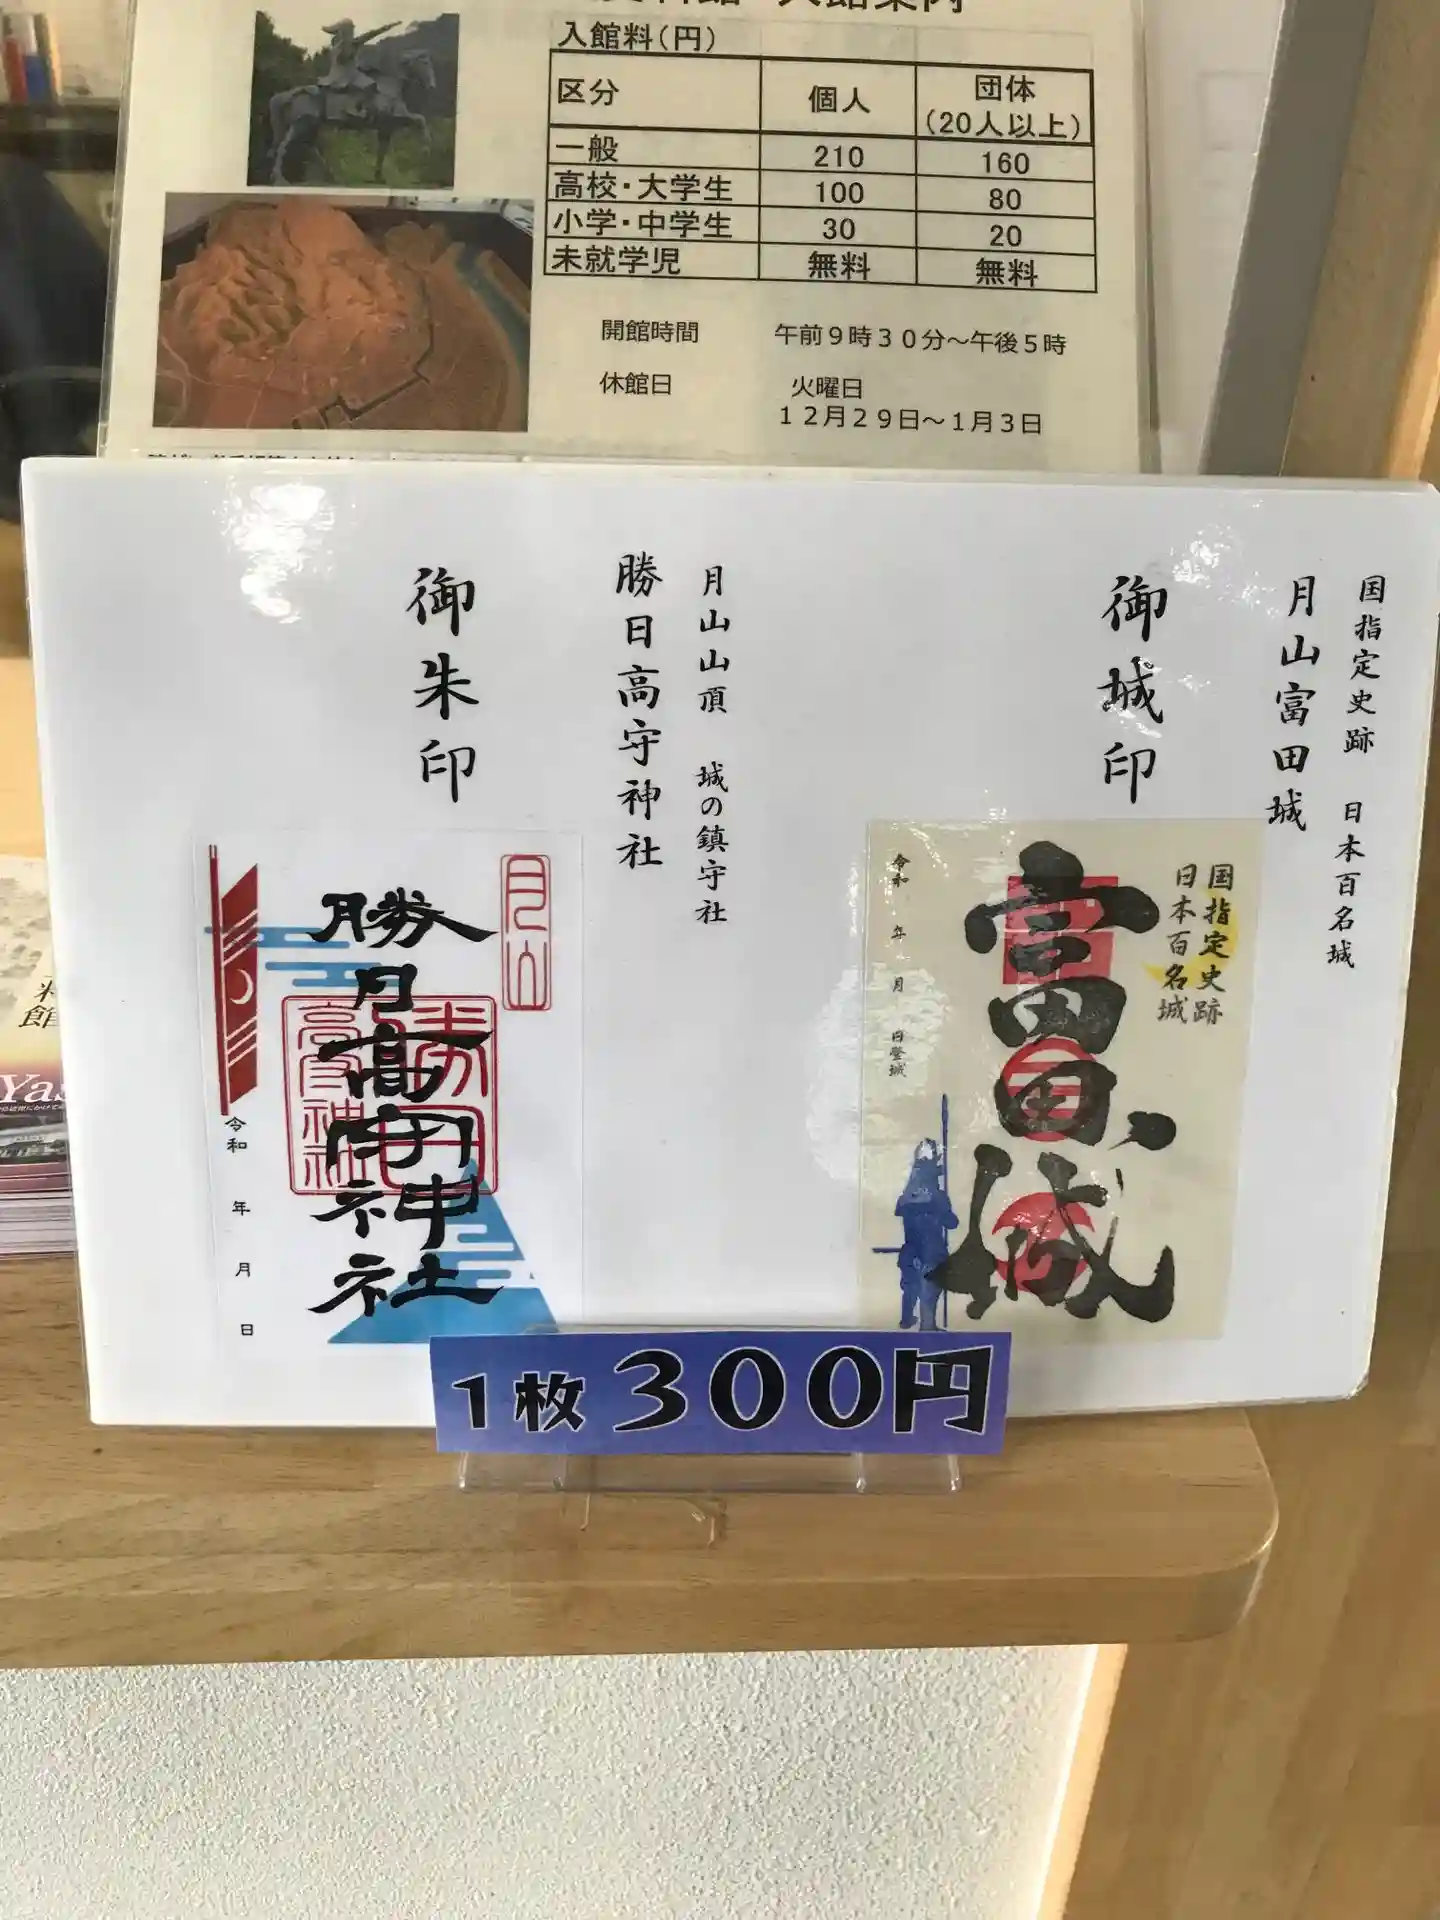 入館案内
入館料(円)
区分 個人 団体(20人以上)
一般 210 160
高校・大学生 100 80
小学・中学生 30 20
未就学児 無料 無料
開館時間 午前9時30分～午後5時
休館日 火曜日
12月29日～1月3日
国指定史跡 日本百名城
月山富田城
御城印
国指定史跡
日本百名城
富田城
令和 年 月 日登城
月山山頂 城の鎮守社
勝日高守神社
御朱印
月山
勝日高守神社
勝日
高守神社
令和 年 月 日
1枚300円
館
Yas